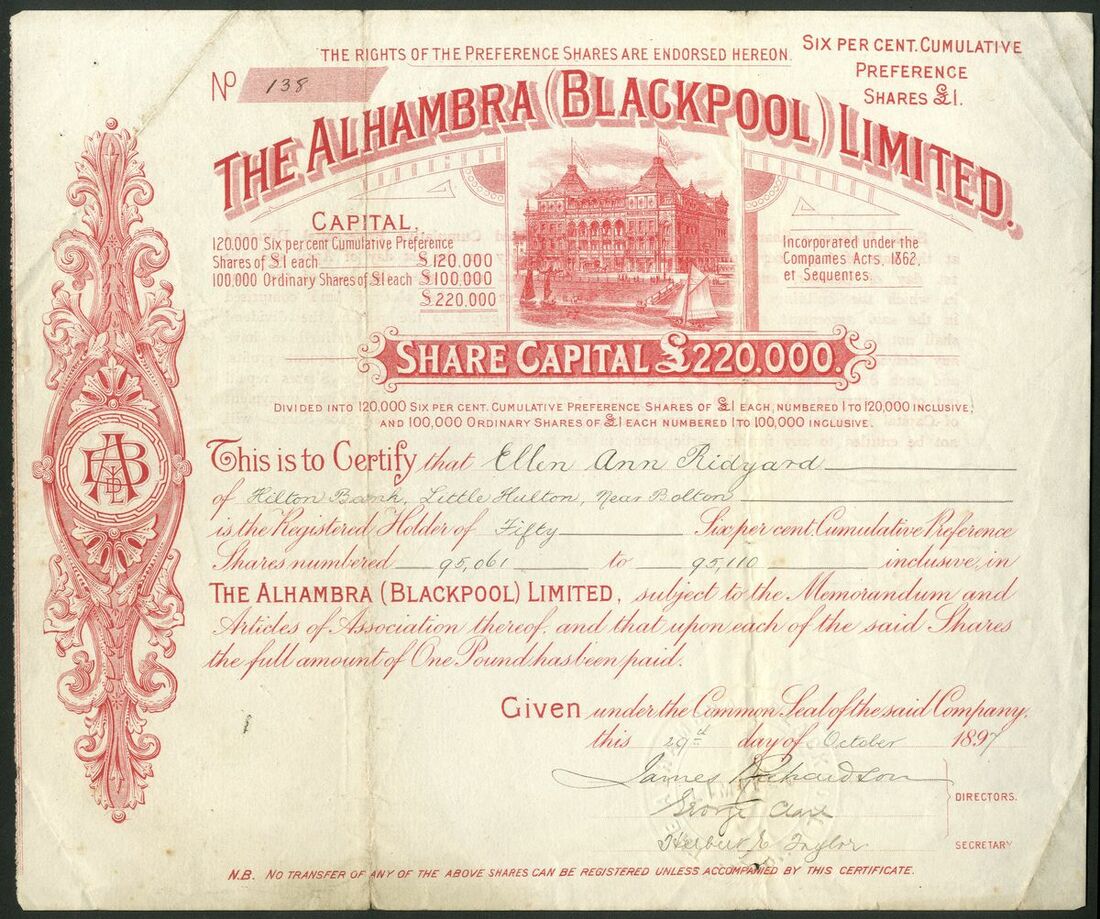 THE RIGHTS OF THE PREFERENCE SHARES ARE ENDORSED HEREON.
SIX PER CENT. CUMULATIVE
PREFERENCE
SHARES £1.
No 138
THE ALHAMBRA (BLACKPOOL) LIMITED.
CAPITAL.
120.000 Six per cent Cumulative Preference
Shares of £1 each £120.000
100,000 Ordinary Shares of £1 each £100.000
£220,000
Incorporated under the
Companies Acts, 1862,
et Sequentes.
SHARE CAPITAL £220.000.
DIVIDED INTO 120,000 SIX PER CENT. CUMULATIVE PREFERENCE SHARES OF £1 EACH, NUMBERED 1 TO 120,000 INCLUSIVE;
AND 100,000 ORDINARY SHARES OF £1 EACH NUMBERED 1 TO 100,000 INCLUSIVE.
This is to Certify that Ellen Ann Ridyard
of Hilton Bank, Little Hulton, Near Bolton
is the Registered Holder of Fifty Six per cent. Cumulative Preference
Shares numbered 95,061 to 95,110 inclusive, in
THE ALHAMBRA (BLACKPOOL) LIMITED, subject to the Memorandum and
Articles of Association thereof, and that upon each of the said Shares
the full amount of One Pound has been paid.
Given under the Common Seal of the said Company,
this 29th day of October 1897
James Richardson
George
DIRECTORS.
Herbert E Taylor
SECRETARY
N.B. NO TRANSFER OF ANY OF THE ABOVE SHARES CAN BE REGISTERED UNLESS ACCOMPANIED BY THIS CERTIFICATE.